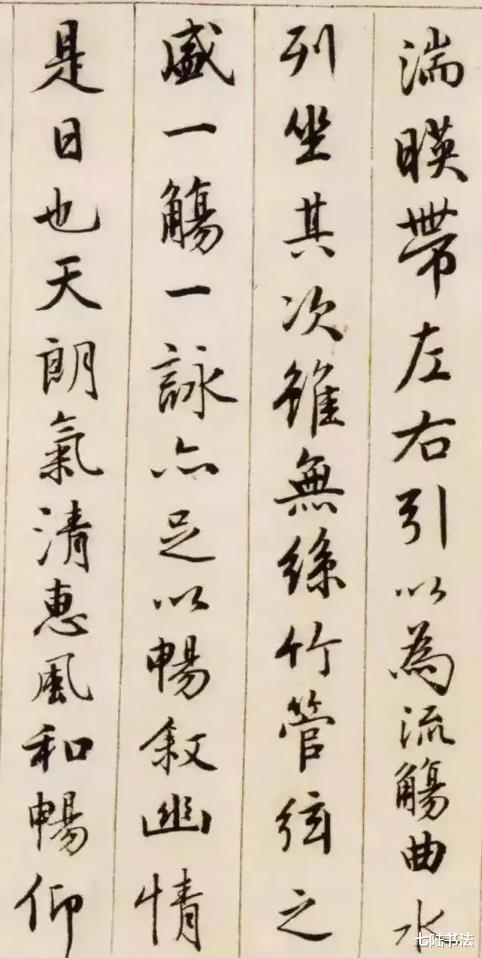 湍暎帶左右引以為流觴曲水
列坐其次雖無絲竹管弦之
盛一觴一詠亦足以暢敘幽情
是日也天朗氣清惠風和暢仰
七陆书法